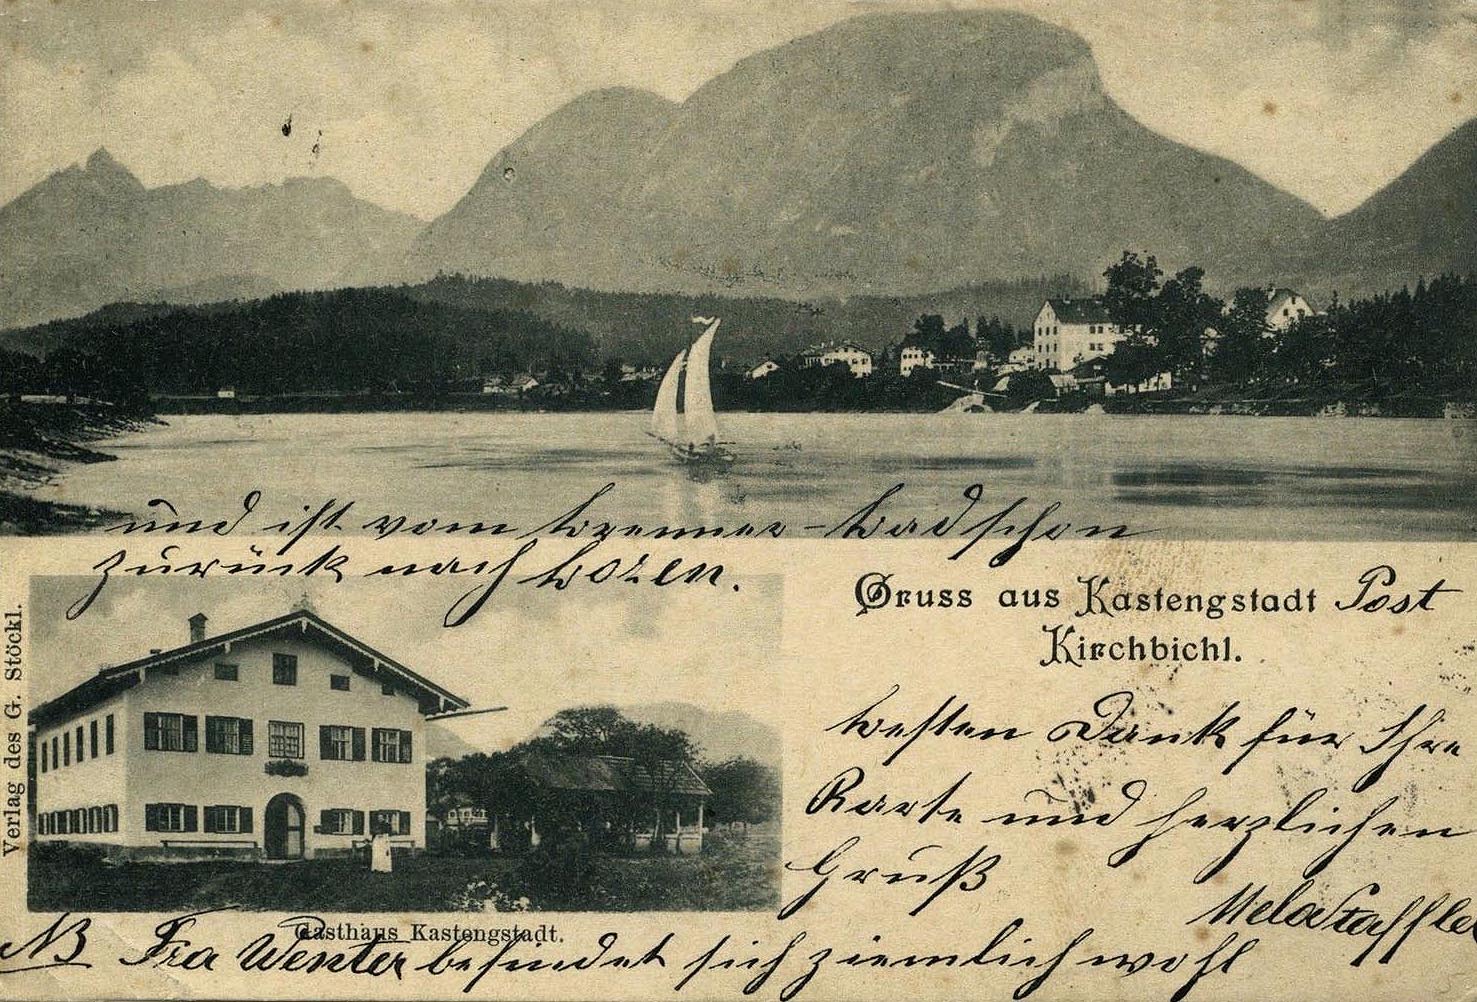 und ist vom Brenner-Bad schon
zurück nach Bozen.
Gruss aus Kastengstadt Post
Kirchbichl.
besten Dank für Ihre
Karte und herzlichen
Gruß
Mela Staffler
Verlag des G. Stöckl.
Gasthaus Kastengstadt.
NB Fra Wenter befindet sich ziemlich wohl